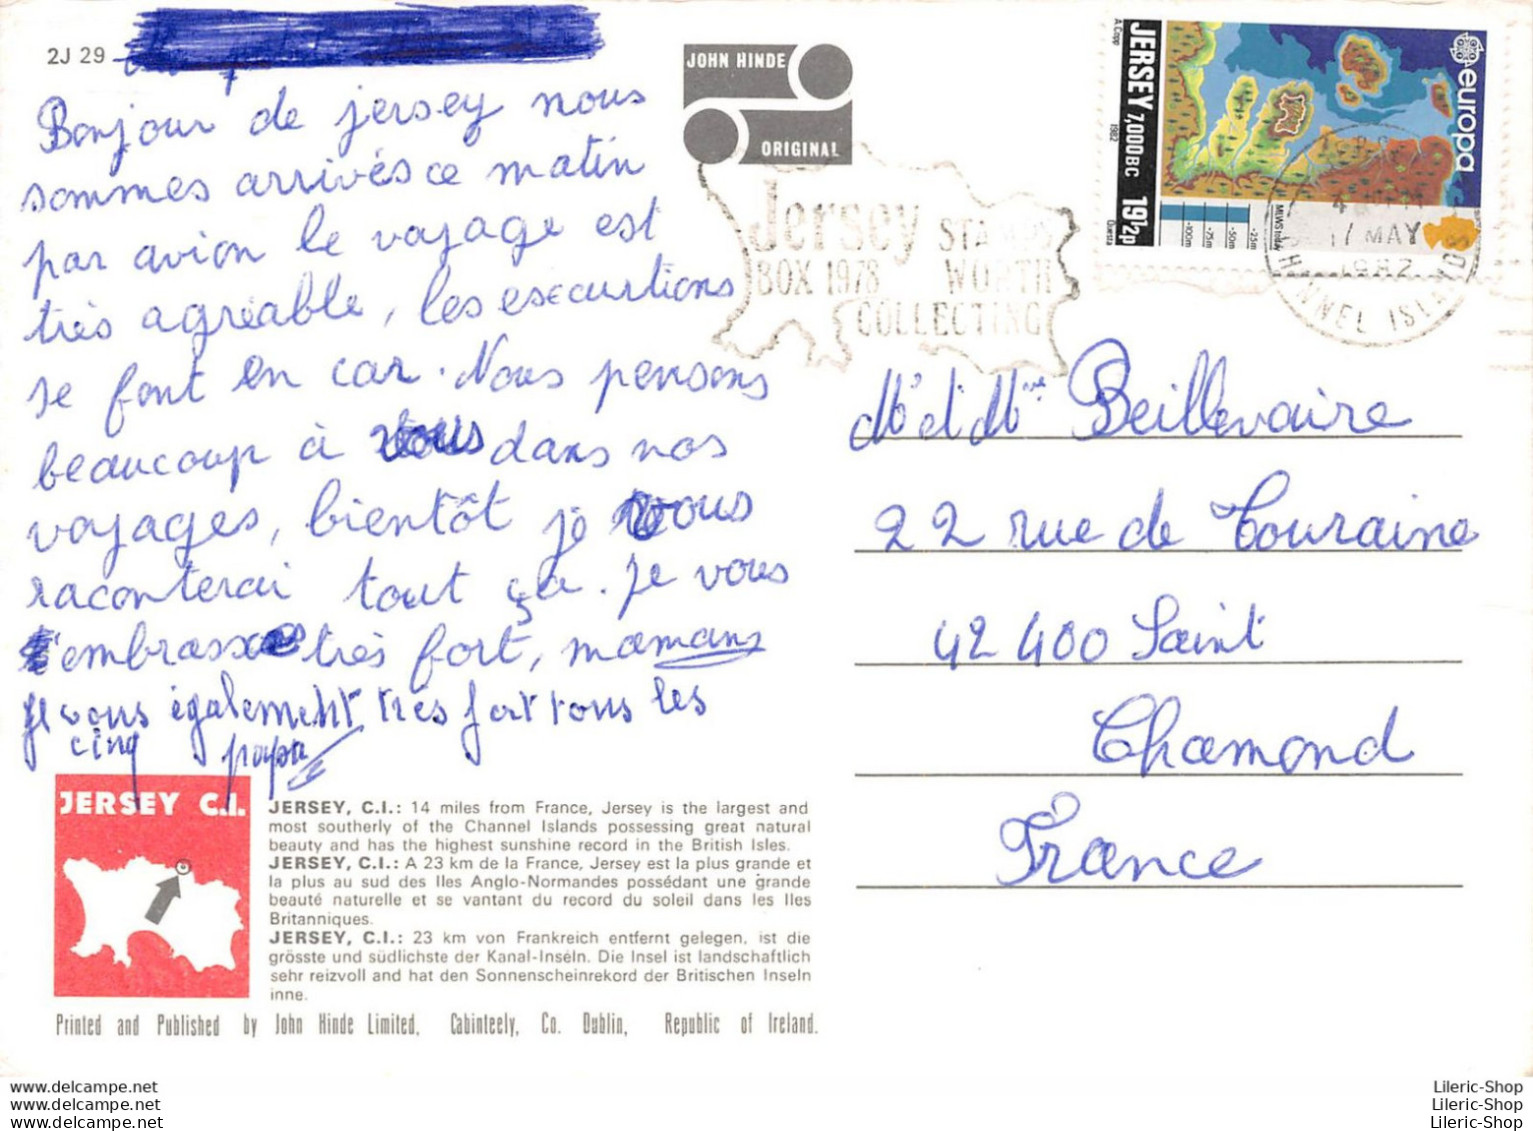 2J 29
Bonjour de jersey nous
sommes arrivés ce matin
par avion le voyage est
très agréable, les esecurtions
se font en car. Nous pensons
beaucoup à vous dans nos
voyages, bientôt je vous
raconterai tout ça. Je vous
embrasse très fort, maman
Je vous également très fort tous les
cinq papa
JOHN HINDE
ORIGINAL
Jersey STAMPS
BOX 1978 WORTH
COLLECTING
JERSEY 7,000 BC 19½p
A.Copp
1982
Questa
europa
MLWS today
-25m
-50m
-75m
-100m
17 MAY
1982
CHANNEL ISLANDS
Mr et Mme Beillevaire
22 rue de Touraine
42 400 Saint
Chamond
France
JERSEY C.I.
JERSEY, C.I.: 14 miles from France, Jersey is the largest and
most southerly of the Channel Islands possessing great natural
beauty and has the highest sunshine record in the British Isles.
JERSEY, C.I.: A 23 km de la France, Jersey est la plus grande et
la plus au sud des Iles Anglo-Normandes possédant une grande
beauté naturelle et se vantant du record du soleil dans les Iles
Britanniques.
JERSEY, C.I.: 23 km von Frankreich entfernt gelegen, ist die
grösste und südlichste der Kanal-Inseln. Die Insel ist landschaftlich
sehr reizvoll and hat den Sonnenscheinrekord der Britischen Inseln
inne.
Printed and Published by John Hinde Limited, Cabinteely, Co. Dublin, Republic of Ireland.
www.delcampe.net
www.delcampe.net
www.delcampe.net
Lileric-Shop
Lileric-Shop
Lileric-Shop